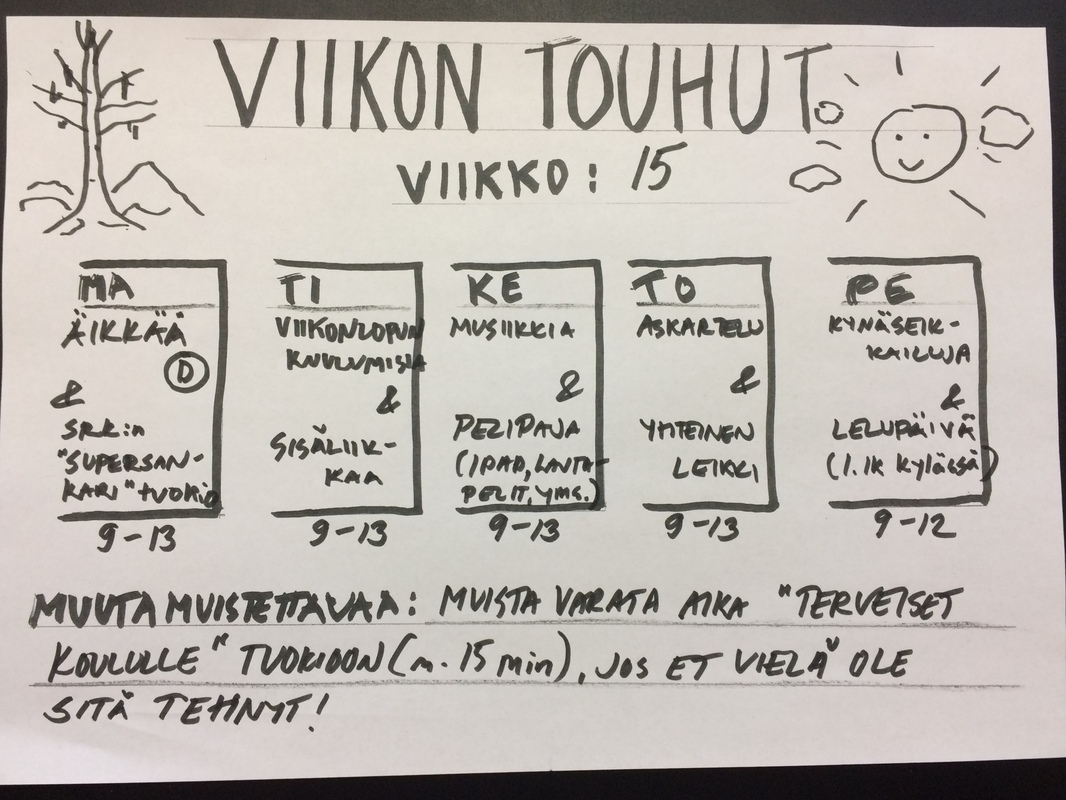 VIIKON TOUHUT
VIIKKO: 15
MA
ÄIKKÄÄ
D
&
SRK:n
"SUPERSAN-
KARI" tuokio
9-13
TI
VIIKONLOPUN
KUULUMISIA
&
SISÄLIIK-
KAA
9-13
KE
MUSIIKKIA
&
PELIPAJA
(IPAD, LAUTA-
PELIT, YMS.)
9-13
TO
ASKARTELU
&
YHTEINEN
LEIKKI
9-13
PE
KYNÄSEIK-
KAILUJA
&
LELUPÄIVÄ
(1. lk kylässä)
9-12
MUUTA MUISTETTAVAA: MUISTA VARATA AIKA "TERVEISET
KOULULLE" TUOKIOON (n. 15 min), JOS ET VIELÄ OLE
SITÄ TEHNYT!